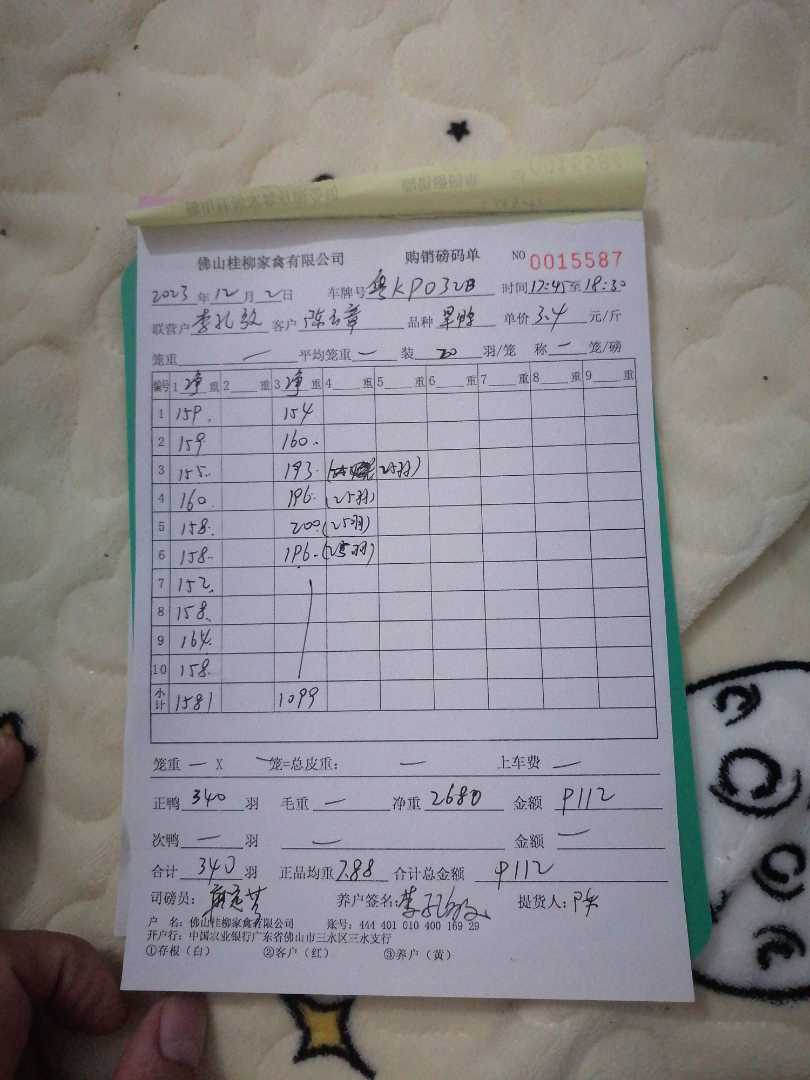 佛山桂柳家禽有限公司 购销磅码单 NO 0015587
2023年12月2日 车牌号 粤KP032B 时间17:45至18:30
联营户 李孔敬 客户 陈玉章 品种 单价 3.4 元/斤
笼重 一 平均笼重 一 装 20 羽/笼 称 一 笼/磅
编号 1 净 重 2 重 3 净 重 4 重 5 重 6 重 7 重 8 重 9 重
1 159. 154
2 159 160.
3 155. 193. (25羽)
4 160. 196. (25羽)
5 158. 200 (25羽)
6 158. 196. (25羽)
7 152.
8 158.
9 164.
10 158.
小计 1581 1099
笼重 一 X 一 笼=总皮重: 一 上车费 一
正鸭 340 羽 毛重 一 净重 2680 金额 9112
次鸭 一 羽 一 金额 一
合计 340 羽 正品均重 7.88 合计总金额 9112
司磅员: 养户签名: 李孔敬 提货人: 陈
户 名: 佛山桂柳家禽有限公司 账号: 444 401 010 400 169 29
开户行: 中国农业银行广东省佛山市三水区三水支行
①存根(白) ②客户(红) ③养户(黄)